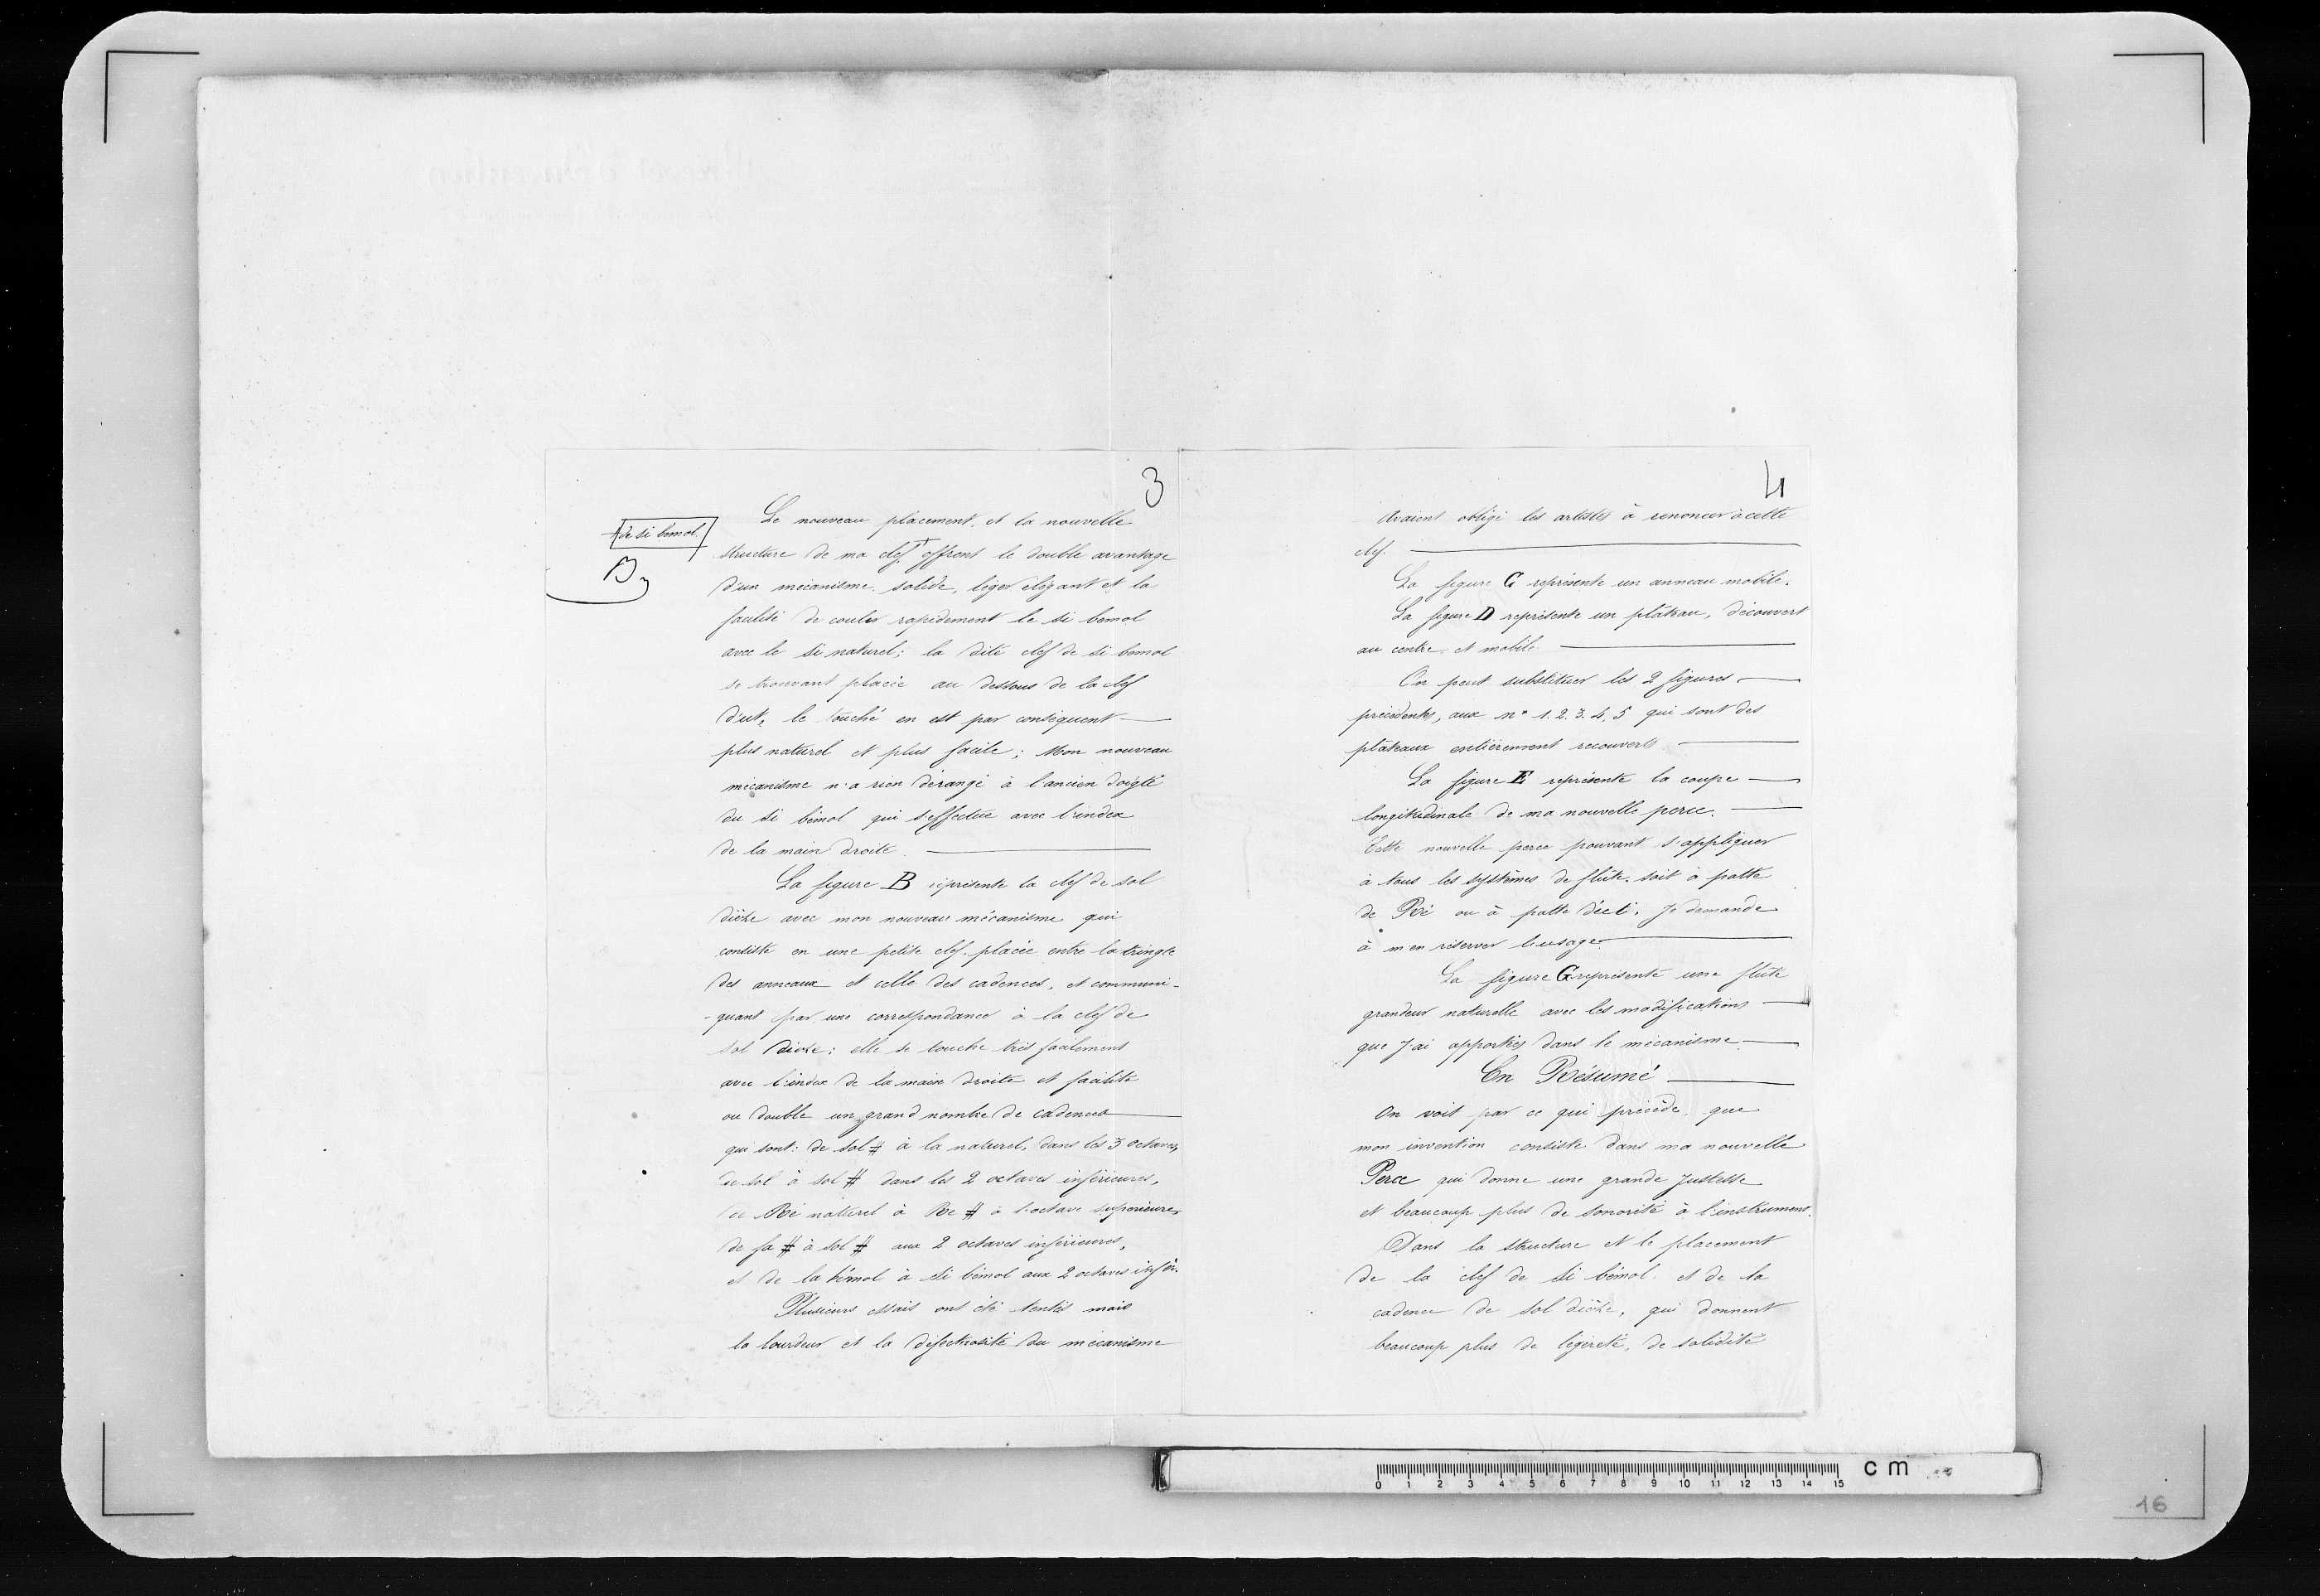 3
+ de si bemol.
B
Le nouveau placement, et la nouvelle
structure de ma clef + offrent le double avantage
d'un mécanisme solide, léger élégant et la
facilité de couler rapidement le si bemol
avec le si naturel; la dite clef de si bemol
se trouvant placée au dessous de la clef
d'ut, le touché en est par conséquent
plus naturel et plus facile; Mon nouveau
mécanisme n'a rien dérangé à l'ancien doigté
du si bémol qui s'effectue avec l'index
de la main droite.
La figure B représente la clef de sol
dièze avec mon nouveau mécanisme qui
consiste en une petite clef placée entre la tringle
des anneaux et celle des cadences, et communi-
-quant par une correspondance à la clef de
sol dièze: elle se touche très facilement
avec l'index de la main droite et facilite
ou double un grand nombre de cadences
qui sont: de sol # à la naturel, dans les 3 octaves,
de sol à sol # dans les 2 octaves inférieures,
de Ré naturel à Re # à l'octave supérieure,
de fa # à sol # aux 2 octaves inférieures,
et de la bémol à si bémol aux 2 octaves infér.
Plusieurs essais ont été tentés mais
la lourdeur et la défectuosité du mécanisme
4
avaient obligé les artistes à renoncer à cette
clef.
La figure C représente un anneau mobile.
La figure D représente un plateau, découvert
au centre et mobile.
On peut substituer les 2 figures
précédentes, aux n° 1. 2. 3. 4. 5 qui sont des
plateaux entièrement recouverts
La figure E représente la coupe
longitudinale de ma nouvelle perce.
Cette nouvelle perce pouvant s'appliquer
à tous les systèmes de flûte. soit à patte
de Ré ou à patte d'ut. Je demande
à m'en réserver l'usage.
La figure G représente une flute
grandeur naturelle avec les modifications
que j'ai apportées dans le mécanisme.
En Résumé
On voit par ce qui précède que
mon invention consiste dans ma nouvelle
Perce qui donne une grande justesse
et beaucoup plus de sonorité à l'instrument.
Dans la structure et le placement
de la clef de si bémol. et de la
cadence de sol dièze, qui donnent
beaucoup plus de légèreté, de solidité
0 1 2 3 4 5 6 7 8 9 10 11 12 13 14 15 cm
16